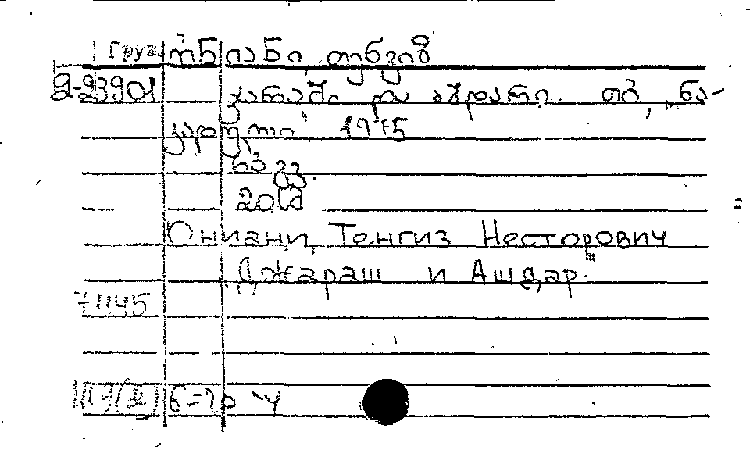 Груз ონიანი თენგიზ
2-23901 ჯარაში და აშდარი. თბ., ნა-
კადული 1975
63 გვ.
20 კ
Ониани, Тенгиз Несторович
Джараш и Ашдар.
71145